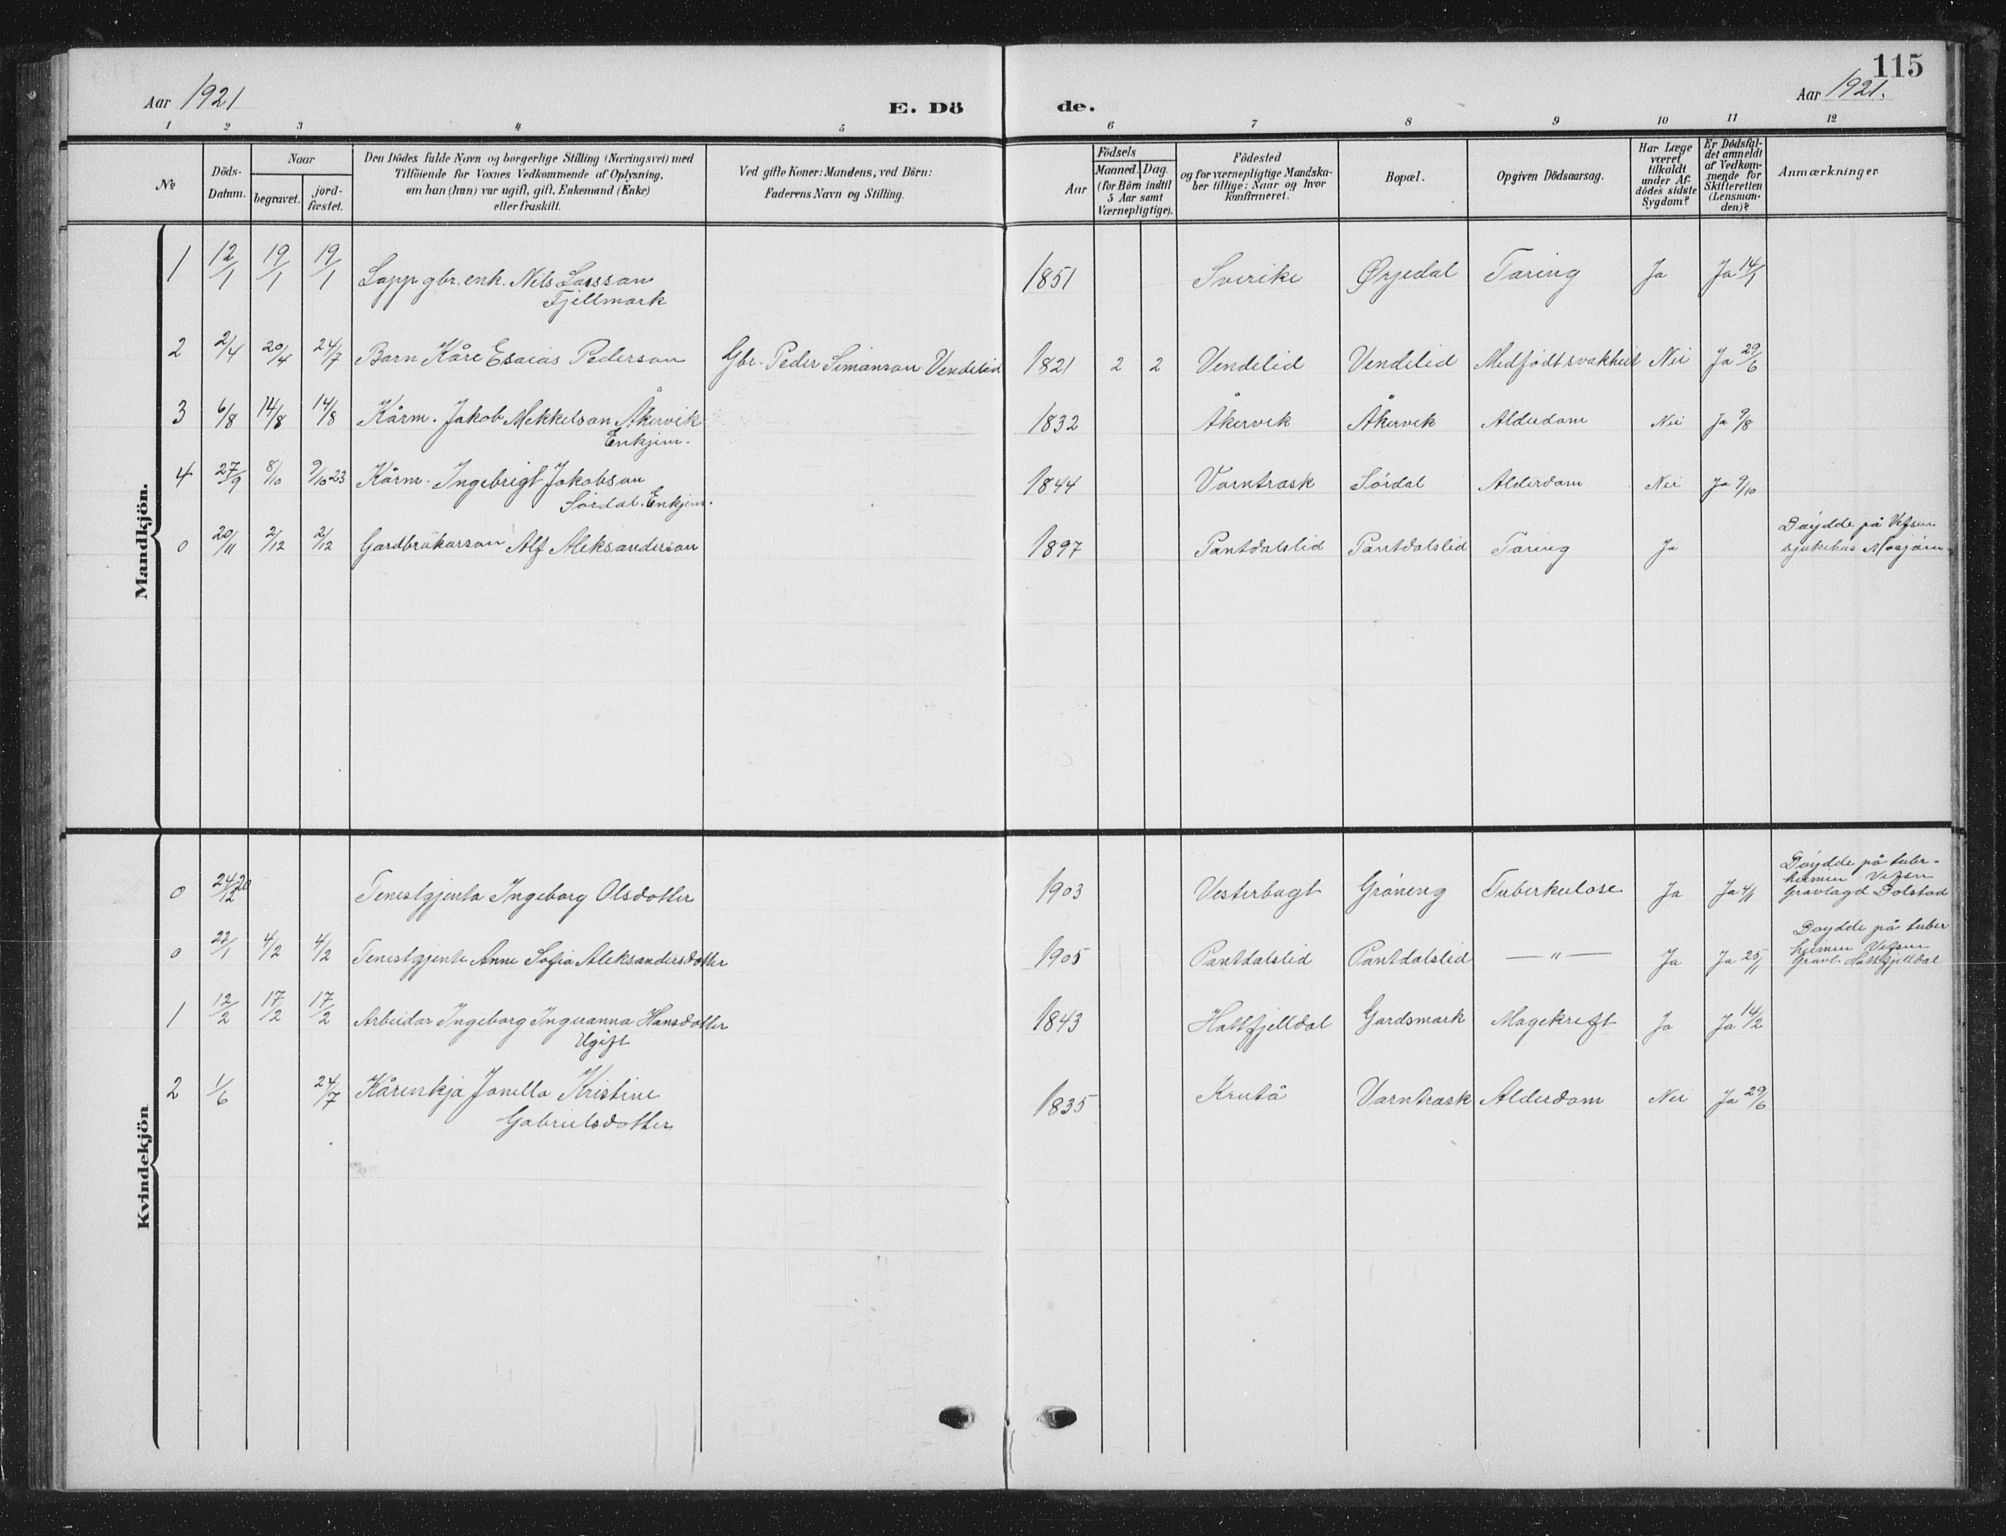 115
Aar 1921
E. Dö
de.
Aar 1921.
1 2 3 4 5 6 7 8 9 10 11 12
No
Döds-
Datum.
Naar
begravet.
jord-
fæstet.
Den Dödes fulde Navn og borgerlige Stilling (Næringsvei) med
Tilföiende for Voxnes Vedkommende af Oplysning,
om han (hun) var ugift, gift, Enkemand (Enke)
eller fraskilt.
Ved gifte Koner: Mandens, ved Börn:
Faderens Navn og Stilling.
Födsels
Aar
Maaned. Dag
(for Börn indtil
5 Aar samt
Værnepligtige).
Födested
og for værnepligtige Mandska-
ber tillige: Naar og hvor
konfirmeret.
Bopæl.
Opgiven Dödsaarsag.
Har Læge
været
tilkaldt
under Af-
dödes sidste
Sygdom?
Er Dödsfal-
det anmeldt
af Vedkom-
mende for
Skifteretten
(Lensman-
den)?
Anmærkninger
Mandkjön.
1 12/1 19/1 19/1 Lapp gbr. enk. Nils Larsson 1851 Sverike Ørjedal Tæring Ja Ja 14/1
Fjellmark
2 2/4 20/4 24/7 Barn Kåre Esaias Pederson Gbr. Peder Simonson Vendelid 1821 2 2 Vendelid Vendelid Medfødt svakheit Nei Ja 29/6
3 6/8 14/8 14/8 Kårm. Jakob Mekkelson Åkervik 1832 Åkervik Åkervik Alderdom Nei Ja 9/8
Enkjem.
4 27/9 8/10 9/10 23 Kårm. Ingebrigt Jakobson 1844 Varntrask Sørdal Alderdom Nei Ja 9/10
Sørdal. Enkjem.
0 20/11 2/12 2/12 Gardbrukarson Alf Aleksanderson 1897 Pantdalslid Pantdalslid Tæring Ja
Døydde på Vefsn
sjukehus Mosjøen
Kvindekjön
0 24/12 20 Tenestgjenta Ingeborg Olsdotter 1903 Vesterbugt Grøneng Tuberkulose Ja Ja 4/1
Døydde på tuber-
heimen Vefsn
Gravlagd Dolstad
0 22/1 4/2 4/2 Tenestgjente Anne Sofia Aleksandersdotter 1905 Pantdalslid Pantdalslid — " — Ja Ja 25/1
Døydde på tuber
heimen Vefsn
Gravl. Hattfjelldal
1 12/2 17/2 17/2 Arbeidar Ingeborg Ingeranna Hansdotter 1843 Hattfjelldal Gardsmark Magekreft Ja Ja 14/2
Ugift
2 1/6 24/7 Kårenkja Jonella Kristine 1835 Krutå Varntrask Alderdom Nei Ja 29/6
Gabrielsdotter